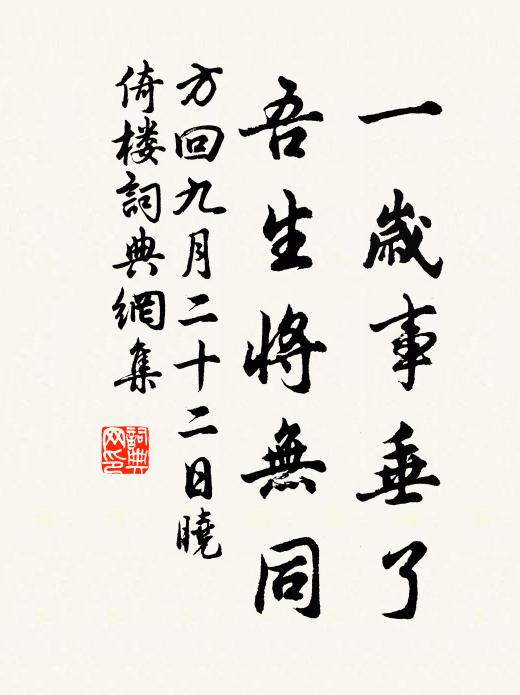 一歲事垂了
吾生將無同
方回九月二十二日曉
倚楼詞典網集
詞典
网印